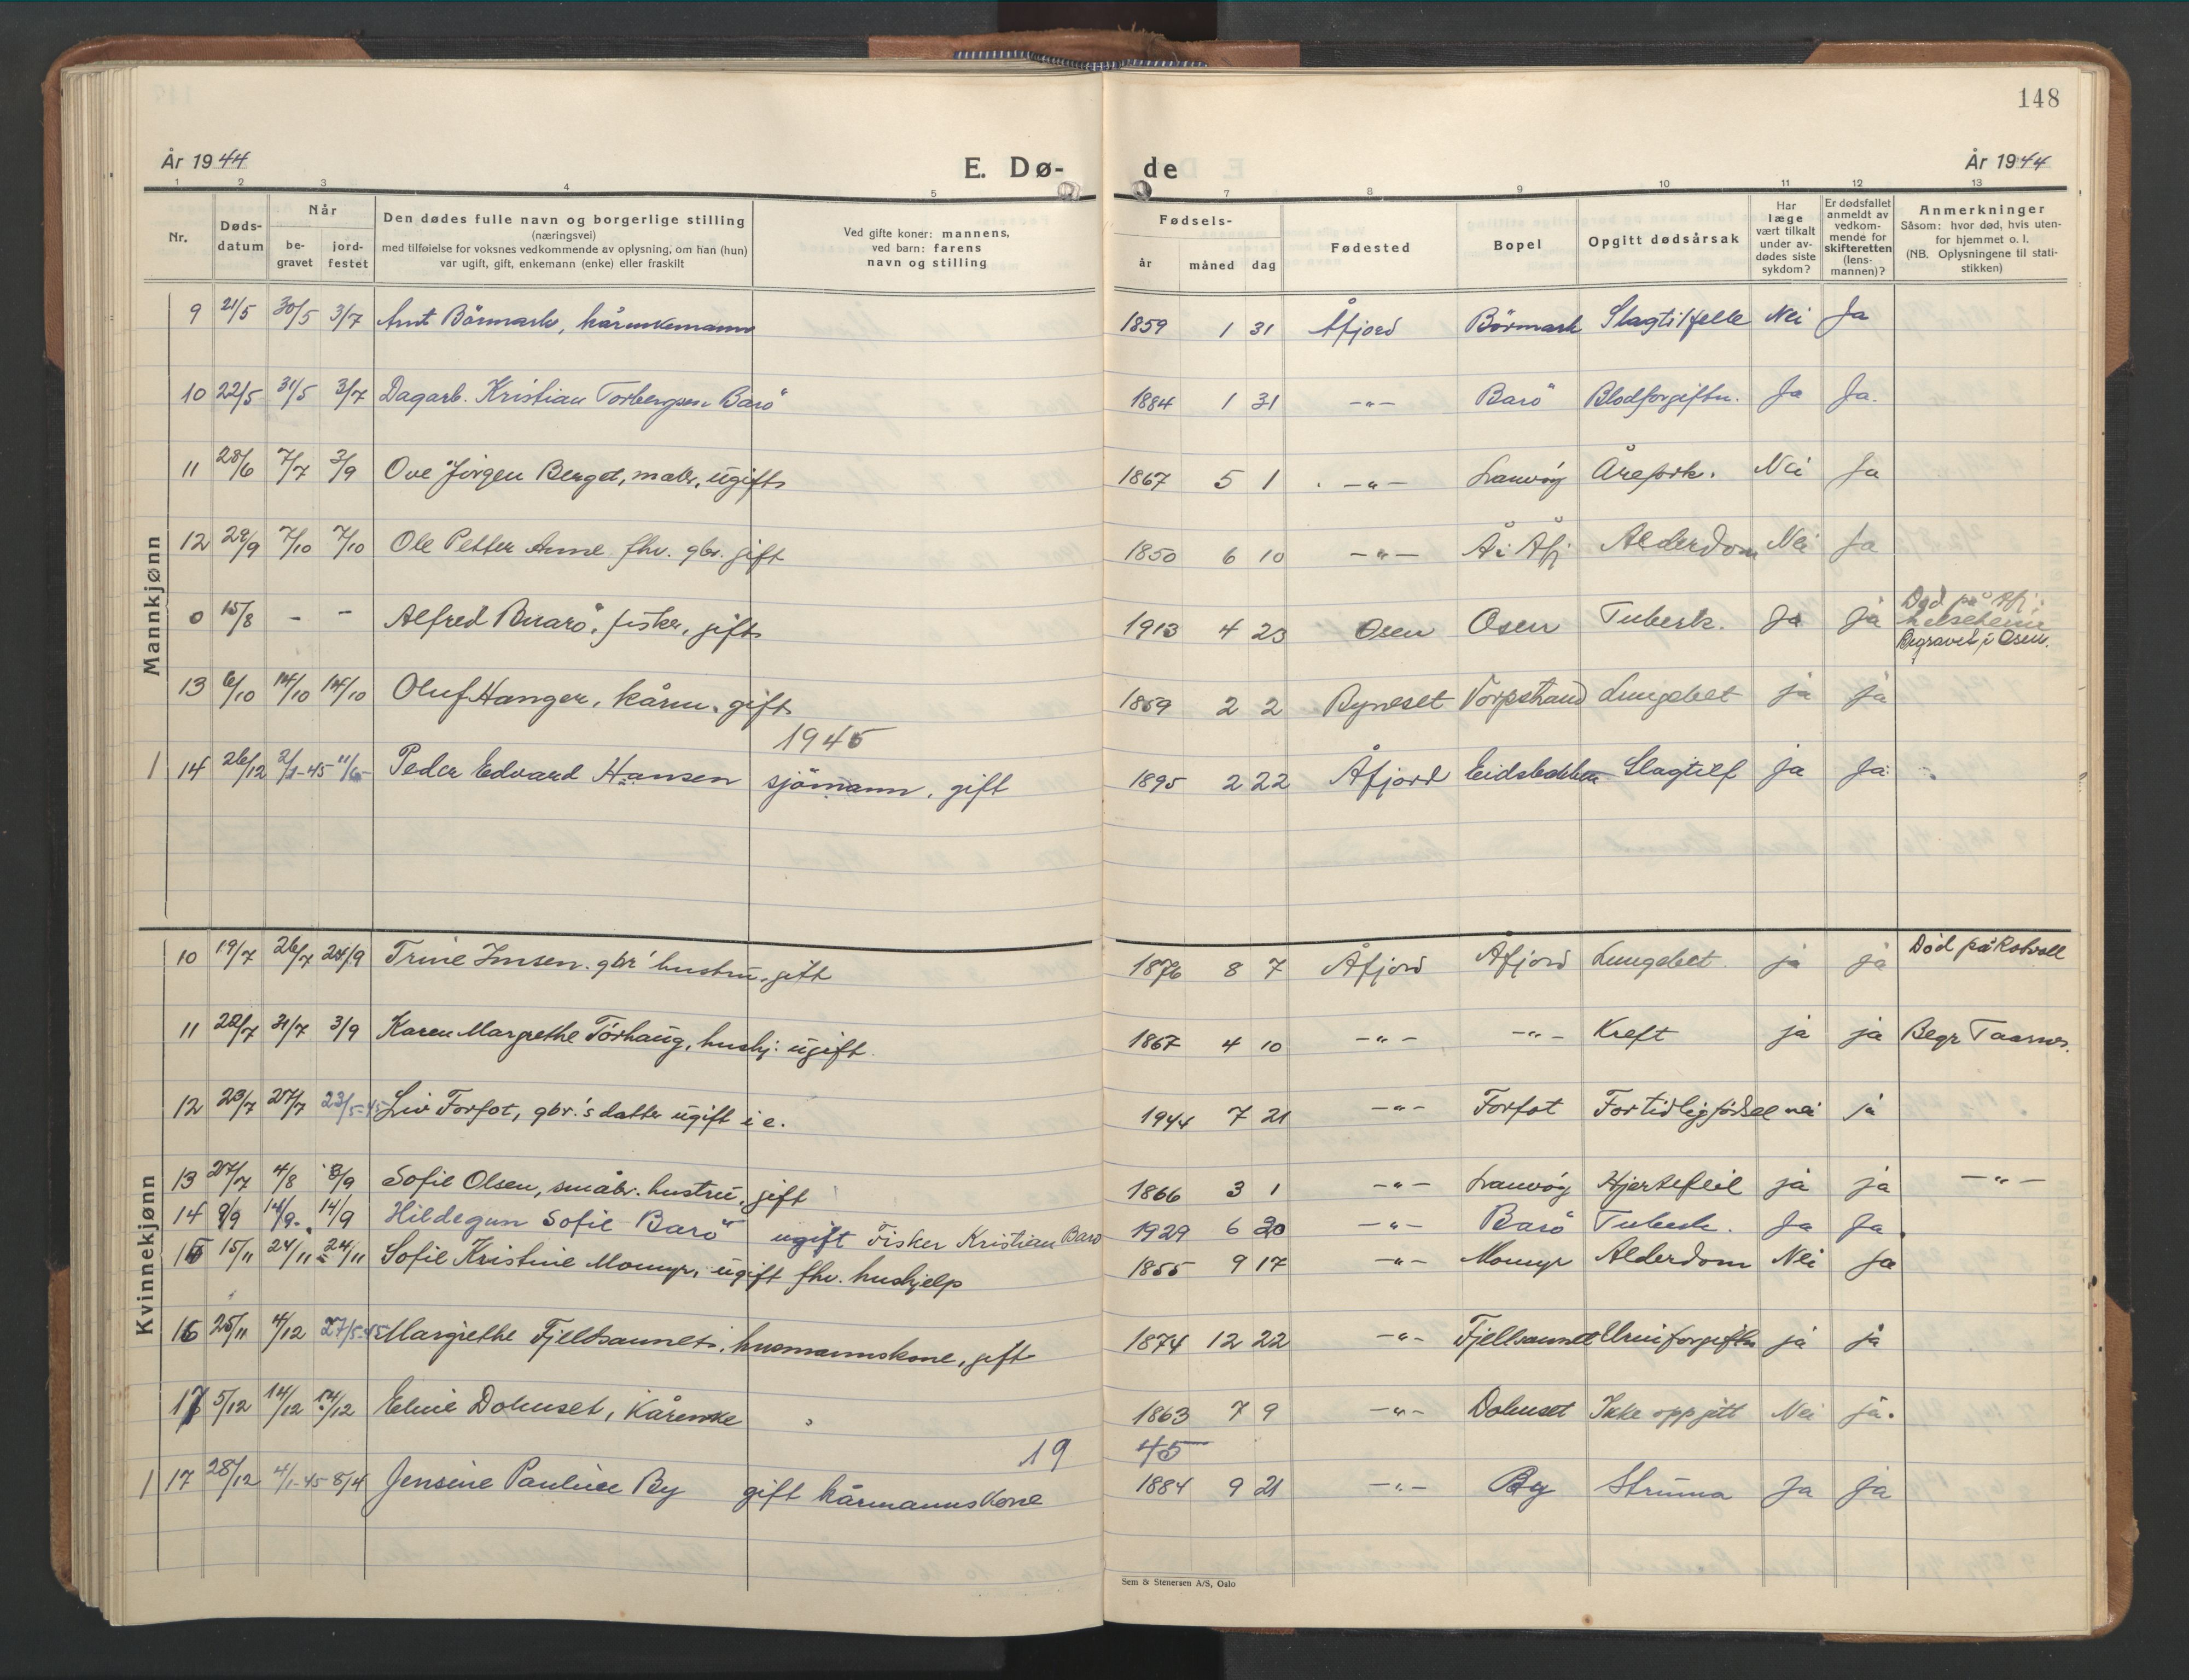 148
År 1944 E. Dø- de År 1944
1 2 3 4 5 7 8 9 10 11 12 13
Nr. Døds-datum Når be-gravet jord-festet Den dødes fulle navn og borgerlige stilling (næringsvei) med tilføielse for voksnes vedkommende av oplysning, om han (hun) var ugift, gift, enkemann (enke) eller fraskilt Ved gifte koner: mannens, ved barn: farens navn og stilling Fødsels- år måned dag Fødested Bopel Opgitt dødsårsak Har læge vært tilkalt under av-dødes siste sykdom? Er dødsfallet anmeldt av vedkom-mende for skifteretten (lens-mannen)? Anmerkninger Såsom: hvor død, hvis uten-for hjemmet o. l. (NB. Oplysningene til stati-stikken)
Mannkjønn
9 21/5 30/5 3/7 Arnt Börmark, kårenkemann 1859 1 31 Åfjord Börmark Slagtilfelle Nei Ja
10 22/5 31/5 3/7 Dagarb. Kristian Torbergsen Barö 1884 1 31 -"- Barö Blodforgiftn. Ja Ja.
11 28/6 7/7 3/9 Ove Jörgen Berget, maler, ugift 1867 5 1 -"- Lauvöy Årefork. Nei Ja
12 28/9 7/10 7/10 Ole Petter Arne fhv. gbr. gift 1850 6 10 -"- Å i Åfj Alderdom Nei Ja
0 15/8 - - Alfred Buarö, fisker, gift 1913 4 23 Osen Osen Tuberk. Ja Ja Död på Åfj. helseheim Begravet i Osen.
13 6/10 14/10 14/10 Oluf Hanger, kårm. gift 1859 2 2 Byneset Vorpstrand Lungebet ja ja
1945
1 14 26/12 2/1-45 Peder Edvard Hansen sjömann, gift 1895 2 22 Åfjord Eidsbakken Slagtilf ja ja
Kvinnekjønn
10 19/7 26/7 24/9 Trine Imsen. gbr' hustru, gift 1876 8 7 Åfjord Åfjord Lungebet ja ja Död på Rotvoll
11 22/7 31/7 3/9 Karen Margrethe Törhaug, hushj. ugift. 1867 4 10 -"- -"- Kreft ja ja Begr Taarnes.
12 23/7 27/7 23/5-45 Liv Forfot, gbr.'s datter ugift i e. 1944 7 21 -"- Forfot For tidlig födsel nei ja
13 27/7 4/8 3/9 Sofie Olsen, småbr. hustru, gift 1866 3 1 -"- Lauvöy Hjertefeil ja ja -"-
14 9/9 14/9. 14/9 Hildegun Sofie Barö ugift Fisker Kristian Barö 1929 6 20 -"- Barö Tuberk. Ja Ja
15 15/11 24/11 24/11 Sofie Kristine Momyr, ugift fhv. hushjelp 1855 9 17 -"- Momyr Alderdom Nei Ja
16 25/11 4/12 27/5-45 Margrethe Fjellsaunet, husmannskone, gift 1874 12 22 -"- Fjellsaunet Urinforgiftn ja ja
17 5/12 14/12 14/12 Eline Dolmset, kårenke 1863 7 9 -"- Dolmset Ikke oppgitt Nei ja.
19 45
1 17 28/12 4/1-45 8/4 Jensine Pauline By gift kårmannskone 1884 9 21 -"- By Struma Ja Ja
Sem & Stenersen A/S, Oslo